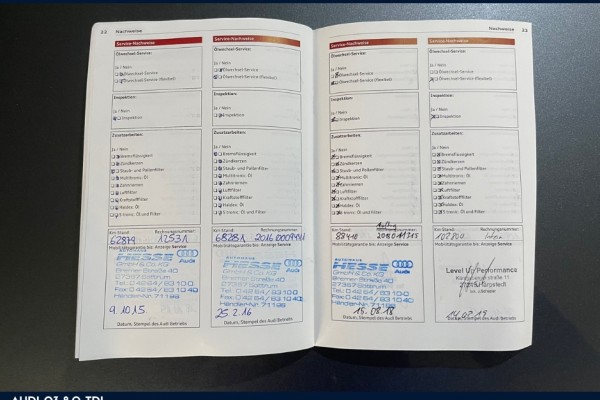 22 Nachweise
Service-Nachweise
Ölwechsel-Service:
Ja / Nein
Ölwechsel-Service
Ölwechsel-Service (flexibel)
Inspektion:
Ja / Nein
Inspektion
Zusatzarbeiten:
Ja / Nein
Bremsflüssigkeit
Zündkerzen
Staub- und Pollenfilter
Multitronic: Öl
Zahnriemen
Luftfilter
Kraftstofffilter
Haldex: Öl
S tronic: Öl und Filter
Km-Stand: Rechnungsnummer:
62879 12531
Mobilitätsgarantie bis: Anzeige Service
AUTOHAUS
HESSE Audi
GmbH & Co. KG
Bremer Straße 40
27367 Sottrum
Tel. 0 42 64 / 83 10 40
Händler-Nr. 71198
9.10.15.
Datum, Stempel des Audi Betriebs
Service-Nachweise
Ölwechsel-Service:
Ja / Nein
Ölwechsel-Service
Ölwechsel-Service (flexibel)
Inspektion:
Ja / Nein
Inspektion
Zusatzarbeiten:
Ja / Nein
Bremsflüssigkeit
Zündkerzen
Staub- und Pollenfilter
Multitronic: Öl
Zahnriemen
Luftfilter
Kraftstofffilter
Haldex: Öl
S tronic: Öl und Filter
Km-Stand: Rechnungsnummer:
68281
Mobilitätsgarantie bis: Anzeige Service
AUTOHAUS
HESSE Audi
GmbH & Co. KG
Bremer Straße 40
27367 Sottrum
Tel. 0 42 64 / 83 10 40
Händler-Nr. 71198
25.2.16
Datum, Stempel des Audi Betriebs
Nachweise 23
Service-Nachweise
Ölwechsel-Service:
Ja / Nein
Ölwechsel-Service
Ölwechsel-Service (flexibel)
Inspektion:
Ja / Nein
Inspektion
Zusatzarbeiten:
Ja / Nein
Bremsflüssigkeit
Zündkerzen
Staub- und Pollenfilter
Multitronic: Öl
Zahnriemen
Luftfilter
Kraftstofffilter
Haldex: Öl
S tronic: Öl und Filter
Km-Stand: Rechnungsnummer:
88410
Mobilitätsgarantie bis: Anzeige Service
AUTOHAUS
HESSE Audi
GmbH & Co. KG
Bremer Straße 40
27367 Sottrum
Tel. 0 42 64 / 83 10 40
Händler-Nr. 71198
15.08.18
Datum, Stempel des Audi Betriebs
Service-Nachweise
Ölwechsel-Service:
Ja / Nein
Ölwechsel-Service
Ölwechsel-Service (flexibel)
Inspektion:
Ja / Nein
Inspektion
Zusatzarbeiten:
Ja / Nein
Bremsflüssigkeit
Zündkerzen
Staub- und Pollenfilter
Multitronic: Öl
Zahnriemen
Luftfilter
Kraftstofffilter
Haldex: Öl
S tronic: Öl und Filter
Km-Stand: Rechnungsnummer:
Mobilitätsgarantie bis: Anzeige Service
Level Up Performance
Datum, Stempel des Audi Betriebs
AUDI Q3 2.0 TDI